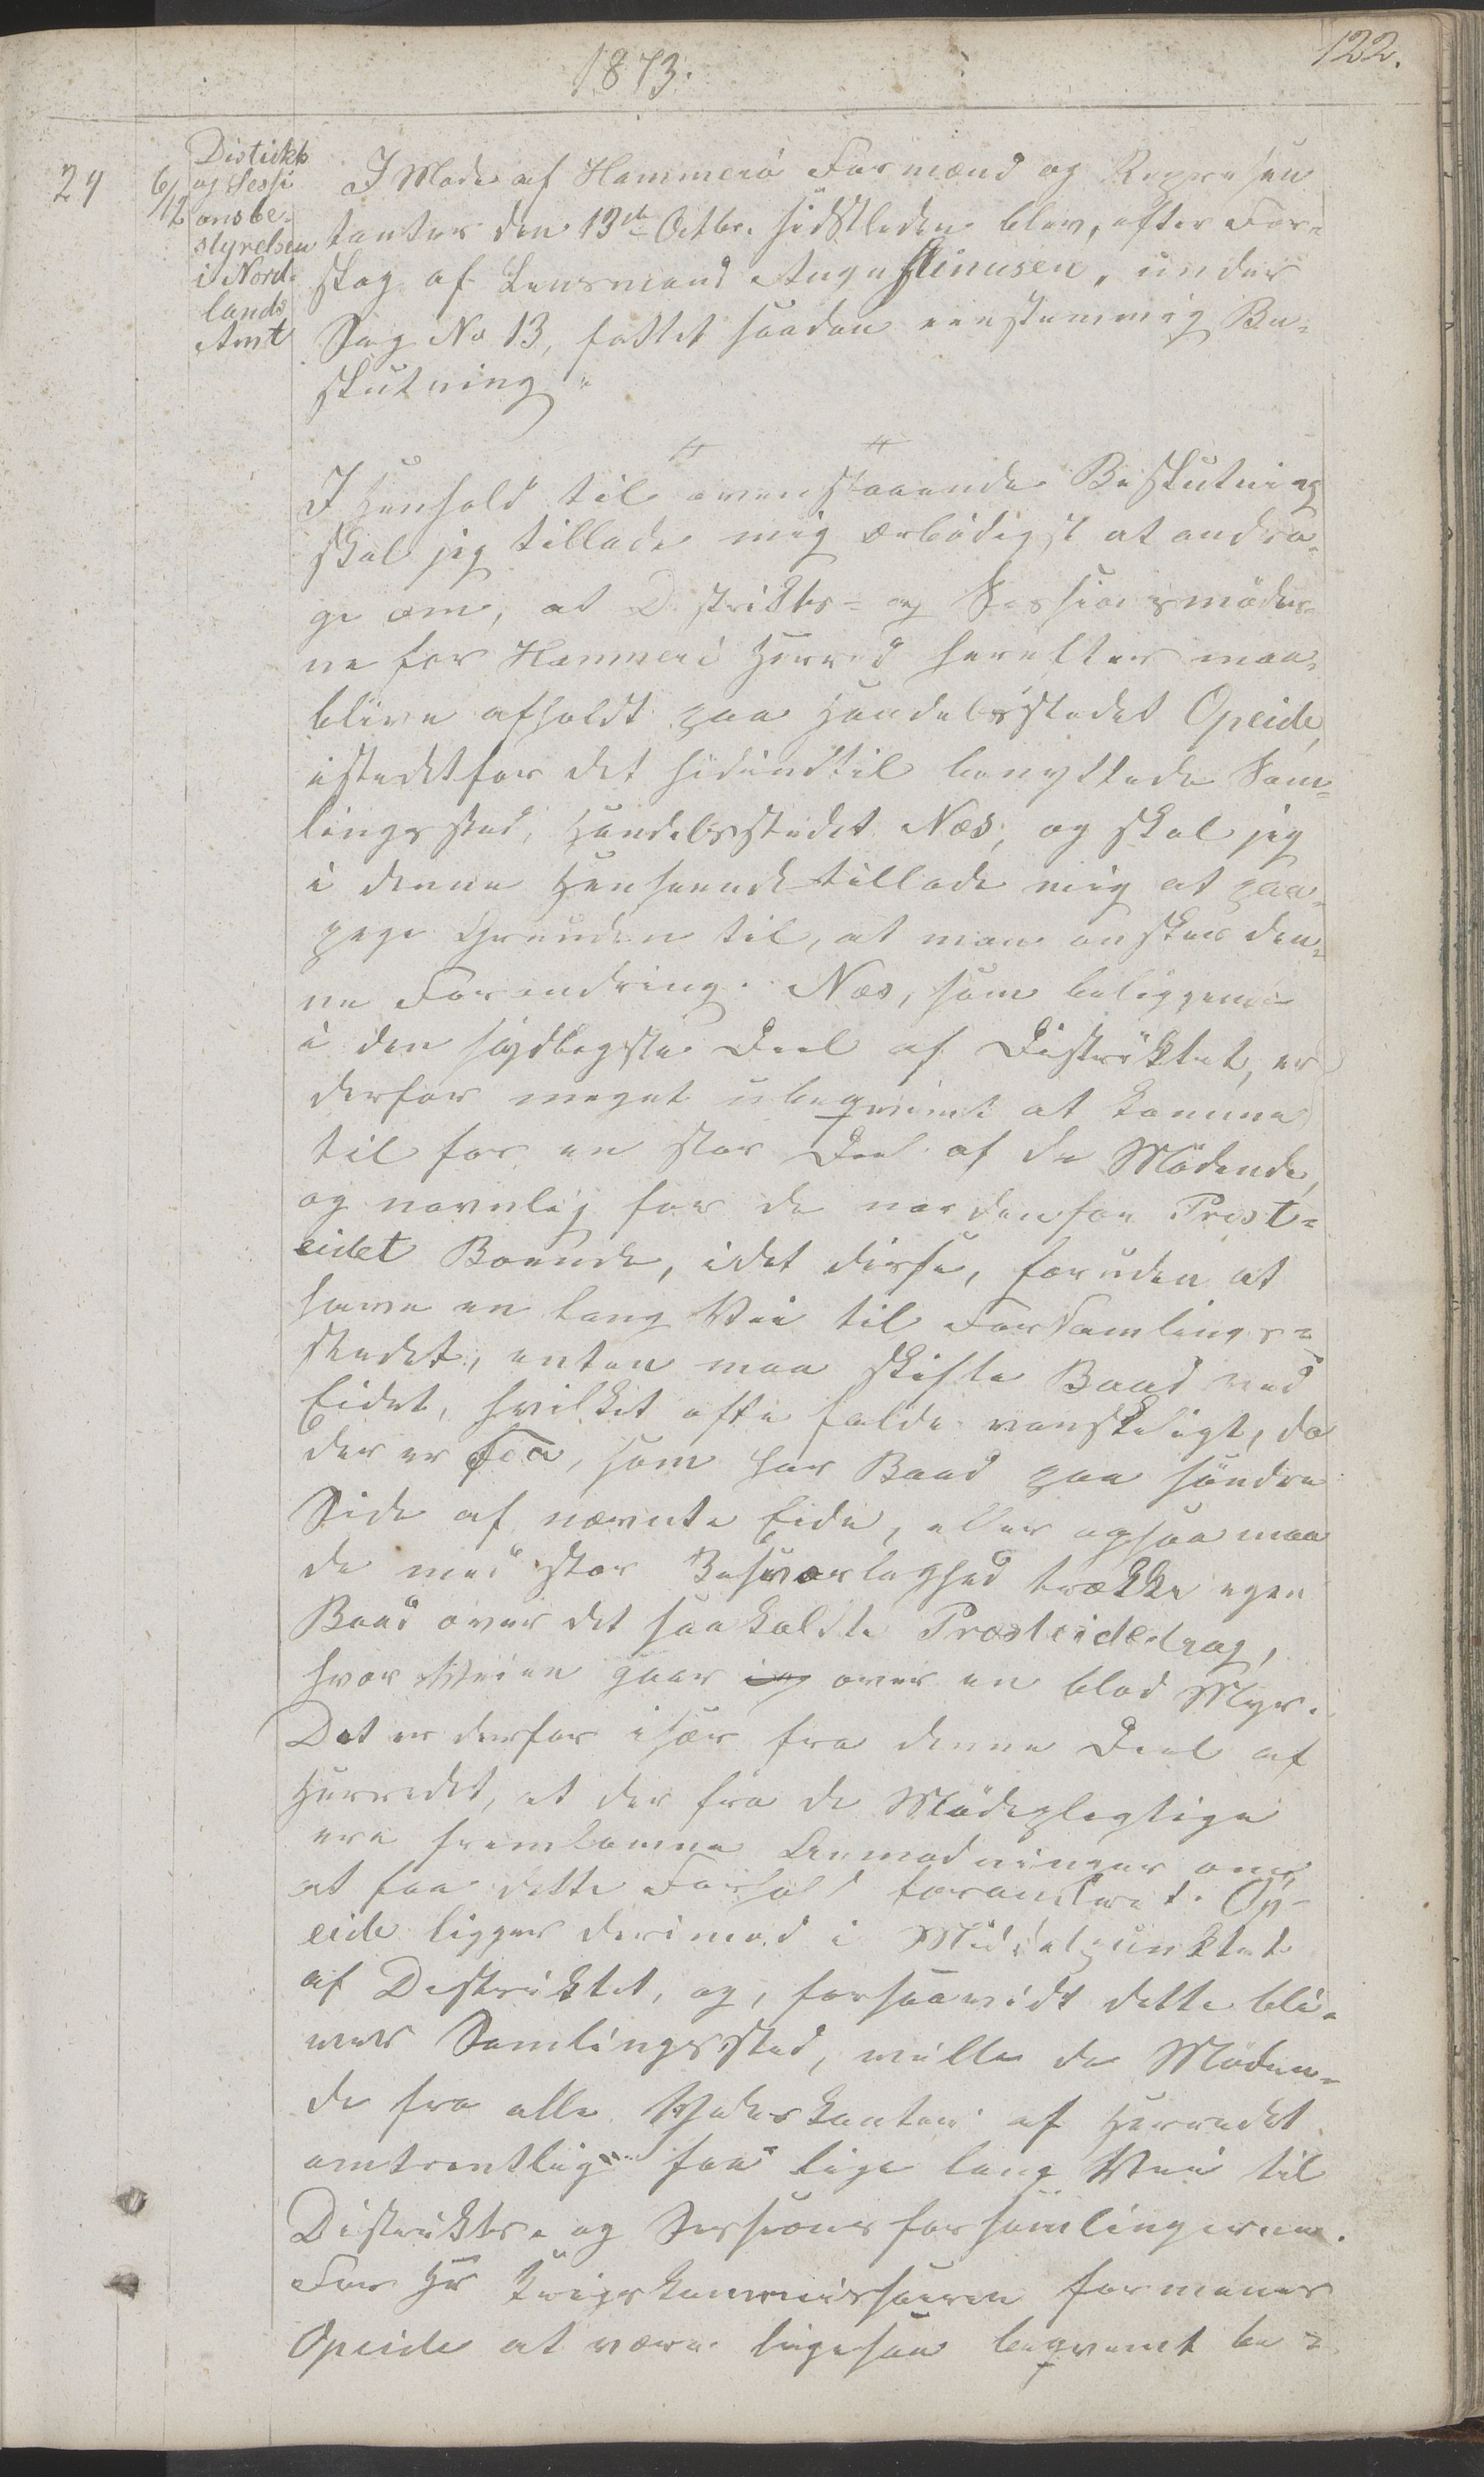 1873.
122.
24
6/12
Distickts
og Sessi
onsbe-
styrelsen
i Nord-
lands
Amt
I Møde af Hammerö Formænd og Represen
tanter den 13de Octbr. sidstleden blev, efter For-
slag af Lensmand Augustinusen, under
Sag No 13, fattet saadan eenstemmig Be-
slutning:
" "
I Henhold til ovenstaaende Beslutning
skal jeg tillade mig ærbödigst at andra-
ge om, at Distrikts- og Sessionsmöder-
ne for Hammerö Herred herefter maa
blive afholdt paa Handelsstedet Opeide,
istedetfor det hidindtil benyttede Sam-
lingssted, Handelsstedet Næs, og skal jeg
i denne Henseende tillade mig at paa-
pege Grunden til, at man önsker den-
ne Forandring. Næs, som beliggende
i den sydligste Deel af Distriktet, er
derfor meget ubeqvemt at komme
til for en stor Deel af de Mödende,
og navnlig for de nordenfor Præst-
eidet Boende, idet disse, foruden at
have en lang Vei til Forsamlings-
stedet, enten maa skifte Baad ved
Eidet, hvilket ofte falder vanskeligt, da
der er Faa, som har Baad paa söndre
Side af nævnte Eide, eller ogsaa maa
de med stor Besværlighed trække egen
Baad over det saakaldte Præsteidedrag,
hvor Veien gaar over en blöd Myr.
Det er derfor især fra denne Deel af
Herredet, at der fra de Mödepligtige
ere fremkomne Anmodninger om,
at faa dette Forhold forandret. Op-
eide ligger derimod i Middelpunktet
af Distriktet, og, forsaavidt dette bli-
ver Samlingssted, ville de Möden-
de fra alle Yderkanter af Herredet
omtrentlig faa lige lang Vei til
Distrikts- og Sessionsforsamlingerne.
For Hr Krigskommissairen formenes
Opeide at være ligesaa beqvemt be-